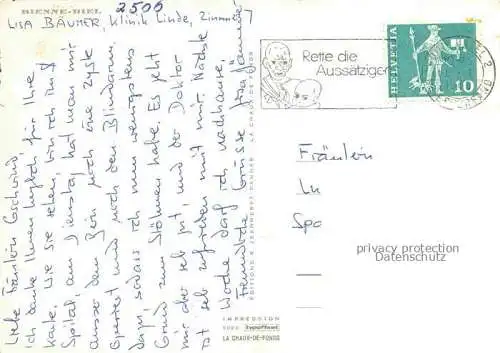 BIENNE-BIEL
2506
LISA BÄUMER, Klinik Linde, Zimmer
Liebe Fräulein Gschwind,
ich danke Ihnen herzlich für Ihre
Karte. Wie Sie sehen, bin ich im
Spital, am Dienstag hat man mir
ausser dem Bein noch eine Zyste
operiert und noch den Blinddarm
dazu, sodass ich nun wenigstens
Grund zum Stöhnen habe. Es geht
mir aber seh gut, und der Doktor
ist seh zufrieden mit mir. Nächste
Woche darf ich nachhause.
Freundliche Grüsse
IMPRESSION
typoffset
LA CHAUX-DE-FONDS
Rette die
Aussätzigen
HELVETIA
10
Fräulein
Lu
Spo
privacy protection
Datenschutz